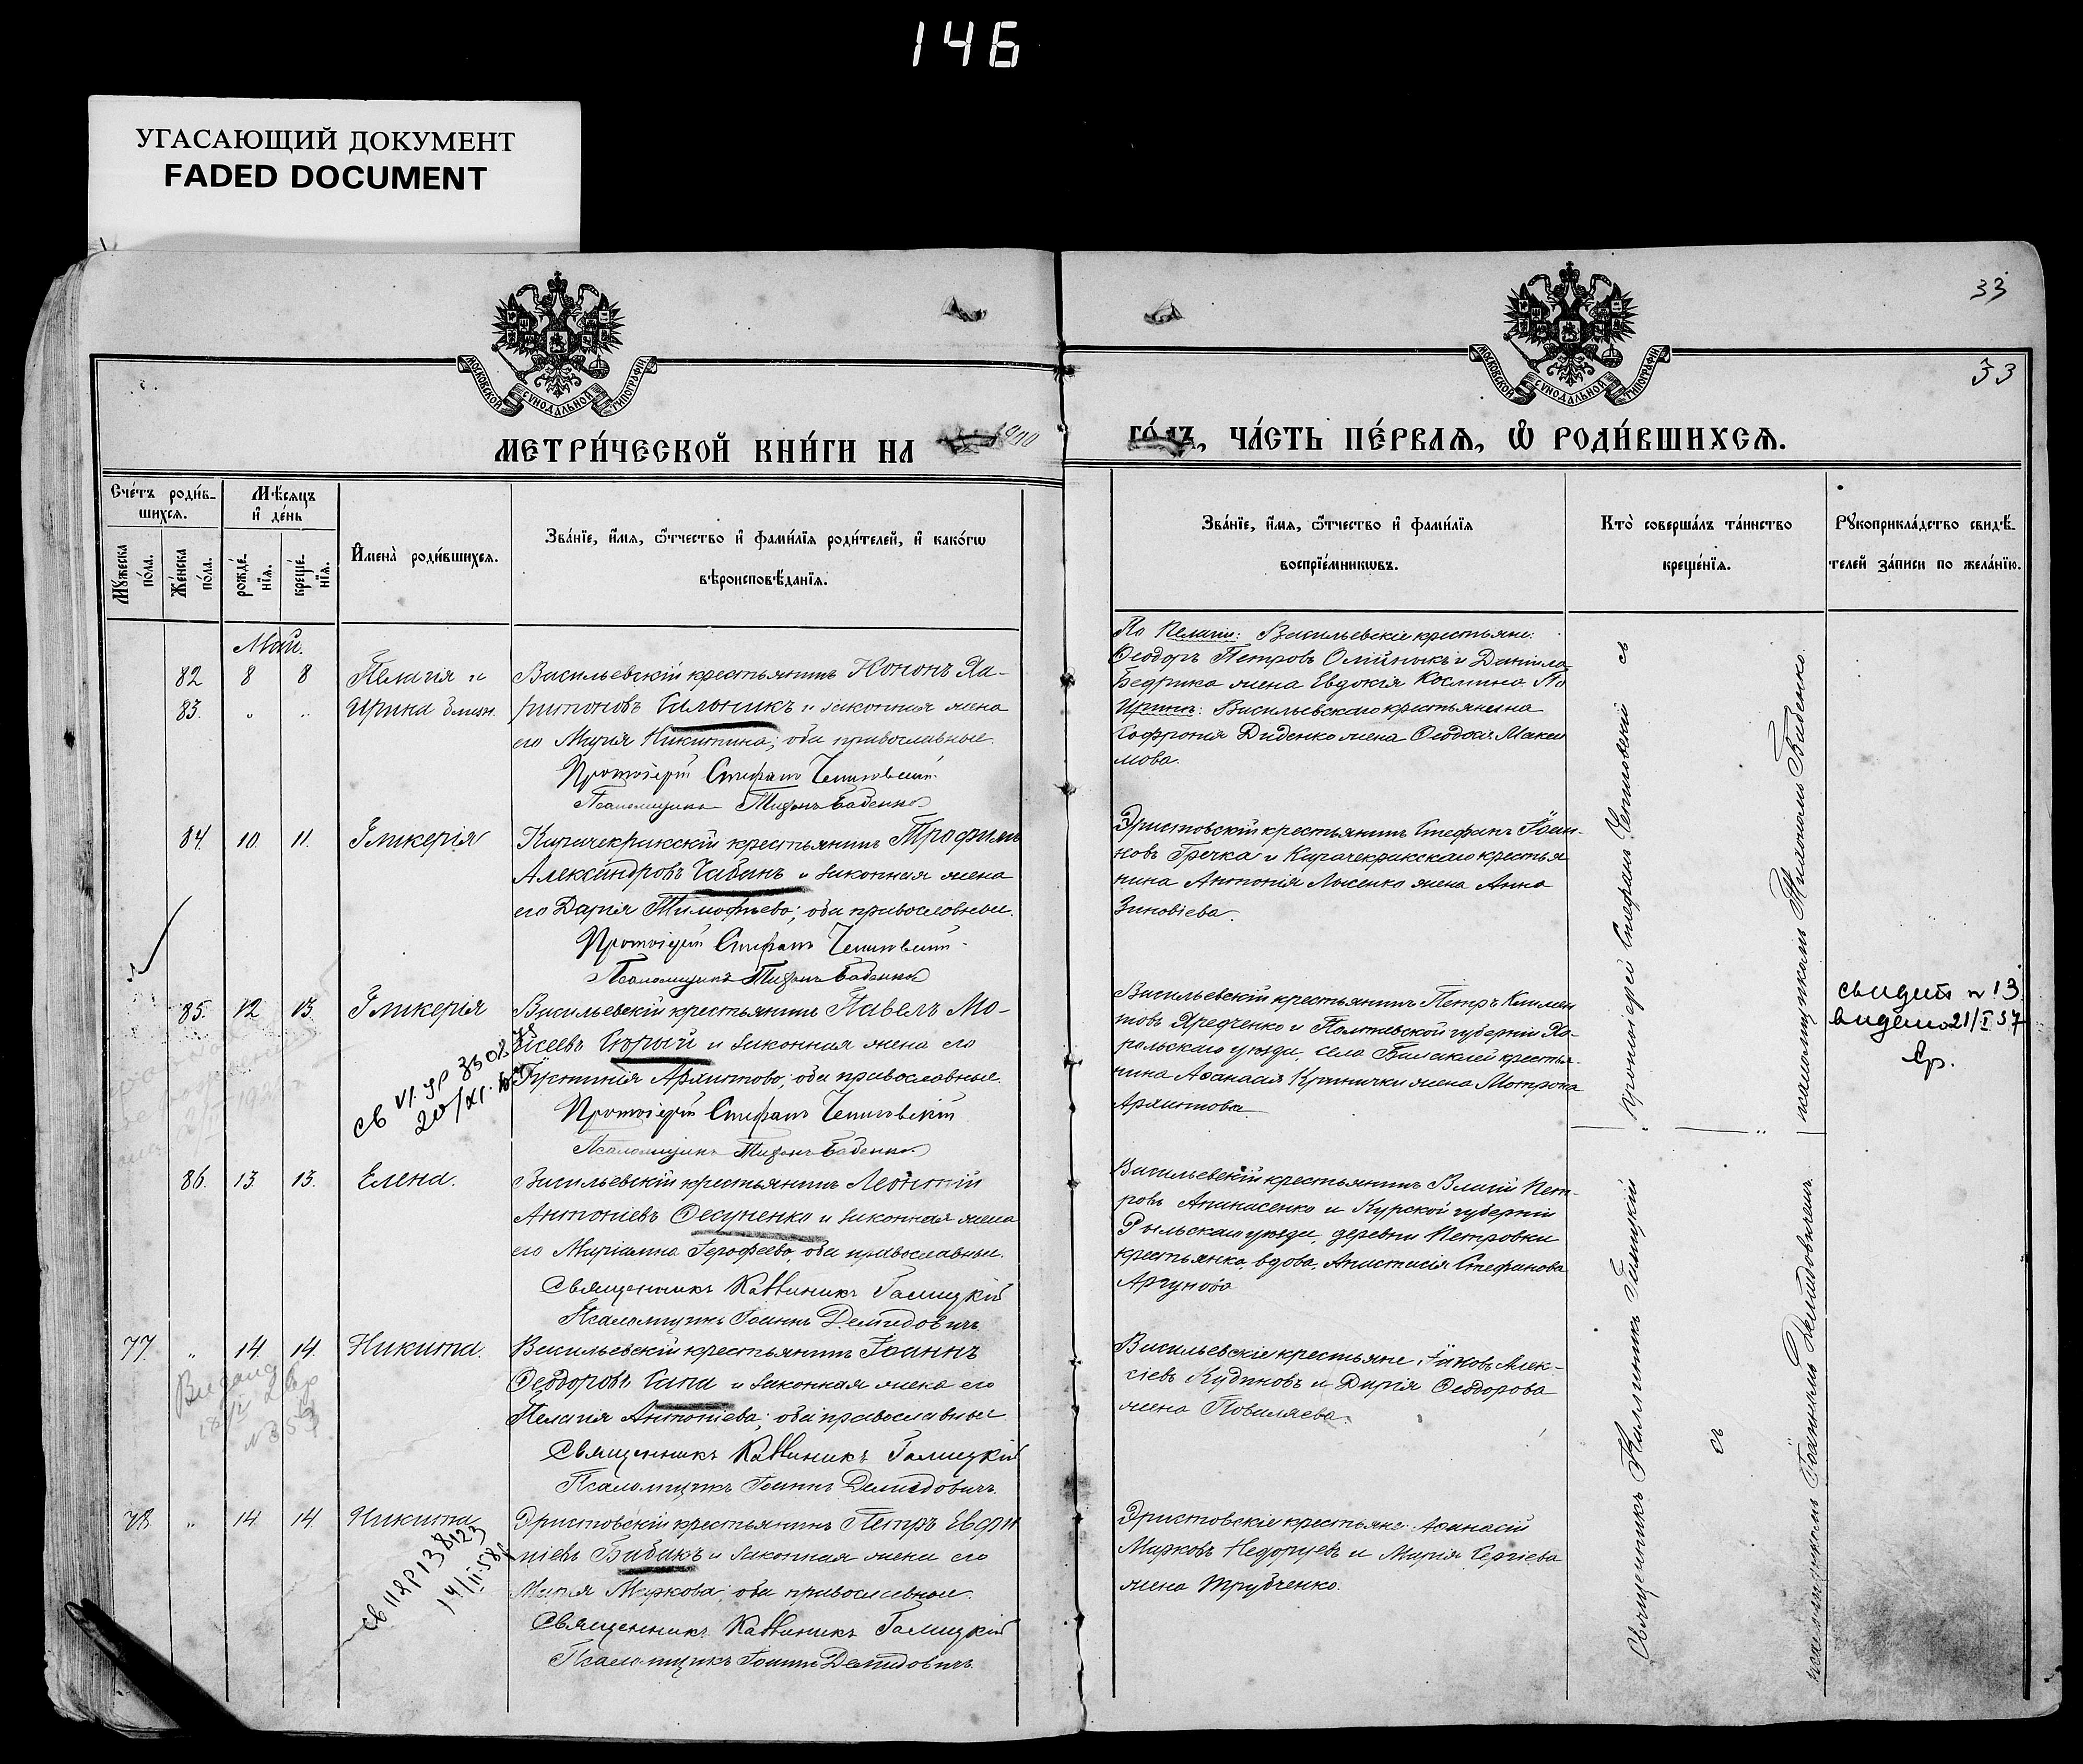 146
УГАСАЮЩИЙ ДОКУМЕНТ
FADED DOCUMENT
33
33
МОСКОВСКОЙ СѴНОДАЛЬНОЙ ТИПОГРАФІИ
МОСКОВСКОЙ СѴНОДАЛЬНОЙ ТИПОГРАФІИ
МЕТРИ́ЧЕСКОЙ КНИ́ГИ НА 1910
ГО́ДЪ, ЧА́СТЬ ПЕ́РВАѦ, Ѡ҆ РОДИ́ВШИХСѦ.
Сче́тъ роди́в-
шихсѧ.
Мꙋ́жеска по́ла.
Же́нска по́ла.
Мѣ́сѧцъ
и҆ де́нь
рожде́-нїѧ.
креще́-нїѧ.
И҆мена̀ роди́вшихсѧ.
Зва́нїе, и҆́мѧ, ѻ҆́тчество и҆ фами́лїѧ роди́телей, и҆ како́гѡ
вѣроисповѣ́данїѧ.
Зва́нїе, и҆́мѧ, ѻ҆́тчество и҆ фами́лїѧ
воспрїе́мникѡвъ.
Кто̀ соверша́лъ та́инство
креще́нїѧ.
Рꙋкоприкла́дство свидѣ́-
телей за́писи по жела́нїю.
Май.
82 8 8 Пелагія и
83. " " Ирина близн.
Васильевскій крестьянинъ Кононъ Ха-
ритоновъ и законная жена
его Марія Никитина; оба православные.
Протоіерей Стефанъ
Псаломщикъ Тихонъ Баденко
По Пелагіи: Васильевскіе крестьяне:
Ѳеодоръ Петровъ Олійникъ и Даніила
Бедрика жена Евдокія Космина. По
Иринѣ: Васильевскаго крестьянина
Софронія Диденко жена Ѳеодосія Макси
мова.
84. 10. 11. Гликерія
Карачекракскій крестьянинъ Трофимъ
Александровъ Чабанъ и законная жена
его Дарія Тимофѣева; оба православные.
Протоіерей Стефанъ
Псаломщикъ Тихонъ Баденко
Эристовскій крестьянинъ Стефанъ Іоан-
новъ Гречка и Карачекракскаго крестья
нина Антонія Лысенко жена Анна
Зиновіева.
85. 12 13. Гликерія
Васильевскій крестьянинъ Павелъ Мо-
исеевъ и законная жена его
Іустинія Архипова; оба православные.
Протоіерей Стефанъ
Псаломщикъ Тихонъ Баденко
Васильевскій крестьянинъ Петръ Климен
товъ и Полтавской губерніи Хо-
рольскаго уѣзда, села крестья-
нина Аѳанасія Кринички жена Матрона
Архипова.
свидет № 13
видено 21/I 57
86. 13 13. Елена.
Васильевскій крестьянинъ Леонтій
Антоніевъ Фесуненко и законная жена
его Маріамна Іероѳеева; оба православные.
Священникъ Каллиникъ Галицкій
Псаломщикъ Іоаннъ Демидовичъ.
Васильевскій крестьянинъ Власій Пет-
ровъ Апанасенко и Курской губерніи
Рыльскаго уѣзда, деревни Петровки
крестьянка, вдова, Анастасія Стефанова
Аргунова
77. " 14 14. Никита.
Васильевскій крестьянинъ Іоаннъ
Ѳеодоровъ и законная жена его
Пелагія Антоніева; оба православные
Священникъ Каллиникъ Галицкій
Псаломщикъ Іоаннъ Демидовичъ.
Васильевскіе крестьяне: Іаковъ Алек-
сіевъ Кудиновъ и Дарія Ѳеодорова
жена
78. " 14. 14. Никита
Эристовскій крестьянинъ Петръ
Бабакъ и законная жена его
Марія Маркова; оба православные.
Священникъ Каллиникъ Галицкій
Псаломщикъ Іоаннъ Демидовичъ.
Эристовскіе крестьяне: Аѳанасій
Марковъ и Марія Сергіева
жена Трубченко.
протоіерей Стефанъ съ
псаломщикомъ Тихономъ Баденко.
Священникъ Каллиникъ Галицкій
съ
псаломщикомъ Іоанномъ Демидовичемъ.